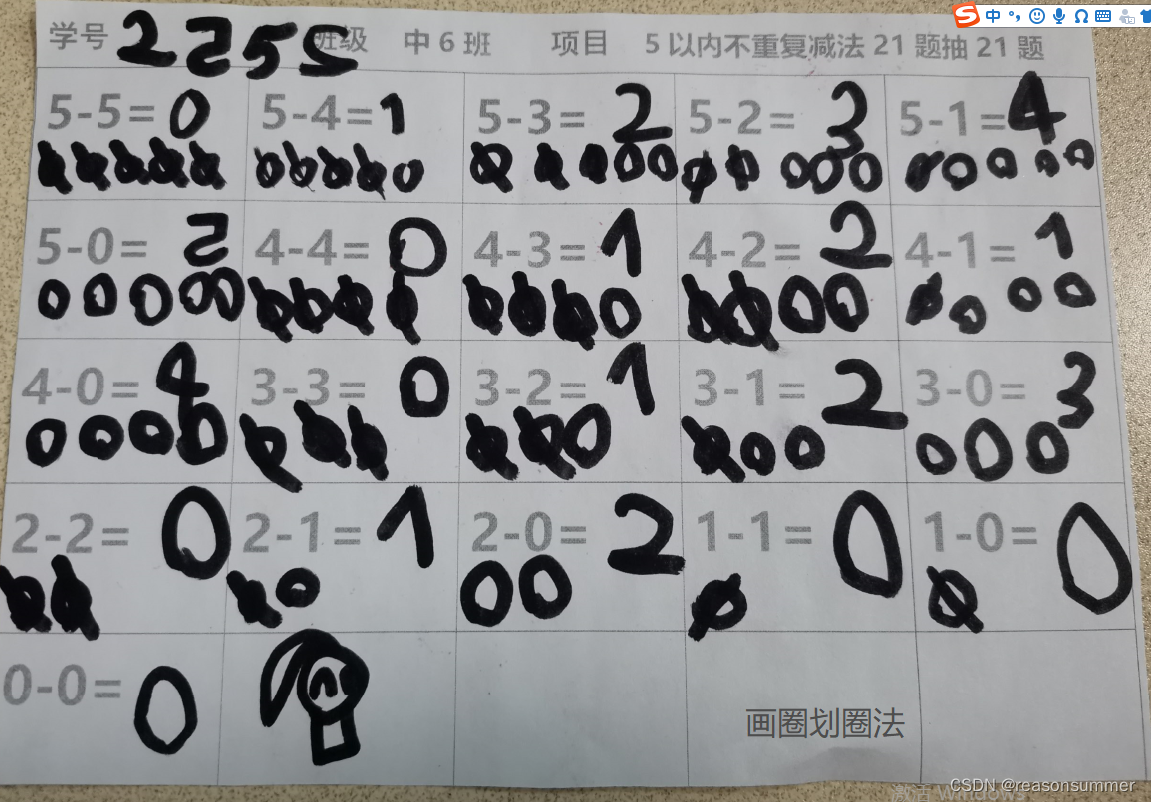 中
学号 2255 班级 中6班 项目 5以内不重复减法21题抽21题
5-5=0 5-4=1 5-3=2 5-2=3 5-1=4
5-0=5 4-4=0 4-3=1 4-2=2 4-1=1
4-0=4 3-3=0 3-2=1 3-1=2 3-0=3
2-2=0 2-1=1 2-0=2 1-1=0 1-0=0
0-0=0
画圈划圈法
CSDN @reasonsummer
激活 Windows